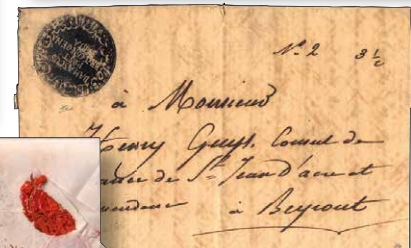 N.o 2 3 1/2
à Monsieur
Henry Guys. Consul de
de St Jean d'acre et
à Beyrout